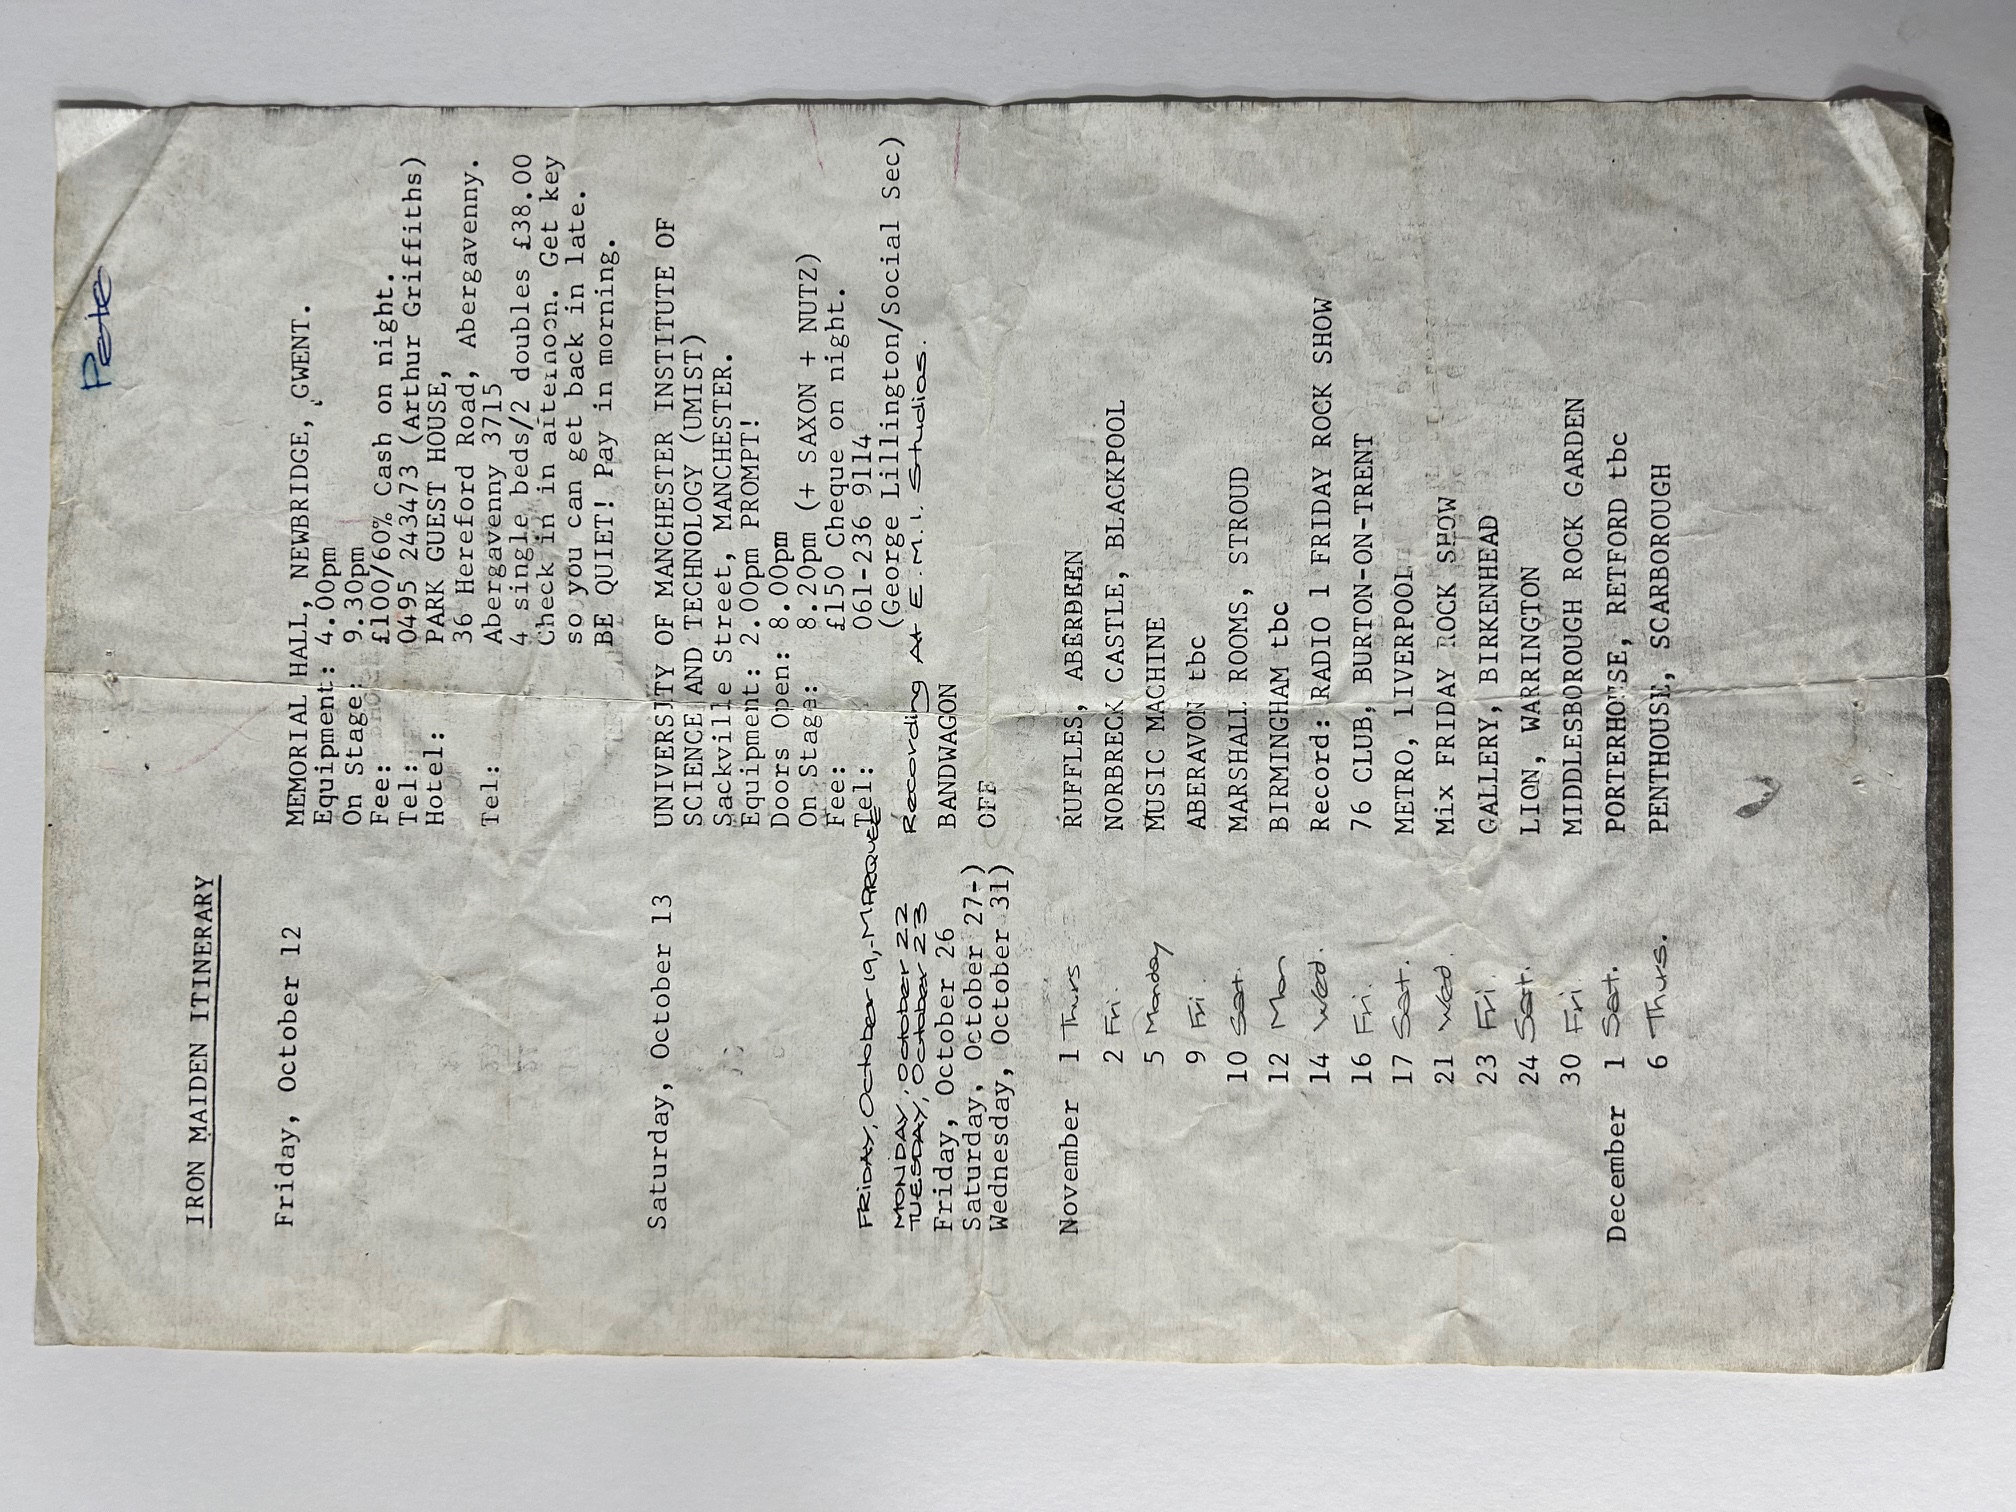 Pete
IRON MAIDEN ITINERARY
Friday, October 12 MEMORIAL HALL, NEWBRIDGE, GWENT.
Equipment: 4.00pm
On Stage: 9.30pm
Fee: £100/60% Cash on night.
Tel: 0495 243473 (Arthur Griffiths)
Hotel: PARK GUEST HOUSE,
36 Hereford Road, Abergavenny.
Tel: Abergavenny 3715
4 single beds/2 doubles £38.00
Check in in afternoon. Get key
so you can get back in late.
BE QUIET! Pay in morning.
Saturday, October 13 UNIVERSITY OF MANCHESTER INSTITUTE OF
SCIENCE AND TECHNOLOGY (UMIST)
Sackville Street, MANCHESTER.
Equipment: 2.00pm PROMPT!
Doors Open: 8.00pm
On Stage: 8.20pm (+ SAXON + NUTZ)
Fee: £150 Cheque on night.
Tel: 061-236 9114
(George Lillington/Social Sec)
FRIDAY, October 19, - MARQUEE
MONDAY, October 22 Recording At E.M.I. Studios.
TUESDAY, October 23
Friday, October 26 BANDWAGON
Saturday, October 27-)
Wednesday, October 31) OFF
November 1 Thurs RUFFLES, ABERDEEN
2 Fri. NORBRECK CASTLE, BLACKPOOL
5 Monday MUSIC MACHINE
9 Fri. ABERAVON tbc
10 Sat. MARSHALL ROOMS, STROUD
12 Mon BIRMINGHAM tbc
14 Wed. Record: RADIO 1 FRIDAY ROCK SHOW
16 Fri. 76 CLUB, BURTON-ON-TRENT
17 Sat. METRO, LIVERPOOL
21 Wed. Mix FRIDAY ROCK SHOW
23 Fri. GALLERY, BIRKENHEAD
24 Sat. LION, WARRINGTON
30 Fri MIDDLESBOROUGH ROCK GARDEN
December 1 Sat. PORTERHOUSE, RETFORD tbc
6 Thurs. PENTHOUSE, SCARBOROUGH